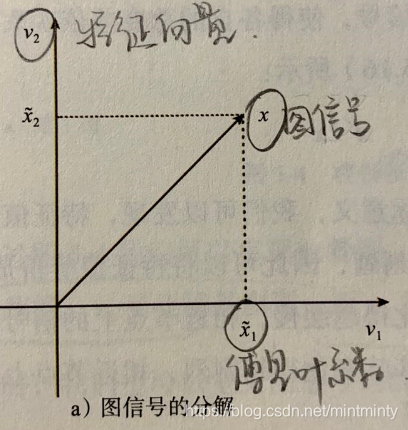 v₂ 特征向量.
x̃₂
x 图信号
x̃₁
v₁
傅里叶系数.
a）图信号的分解
https://blog.csdn.net/mintminty